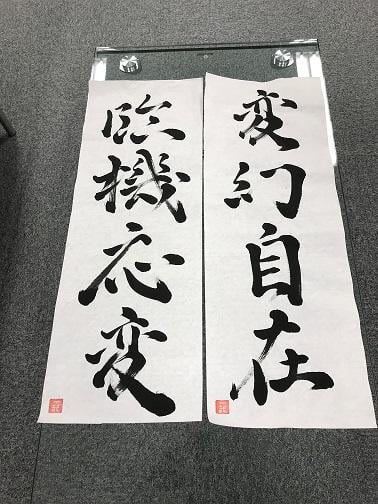 変幻自在
臨機応変